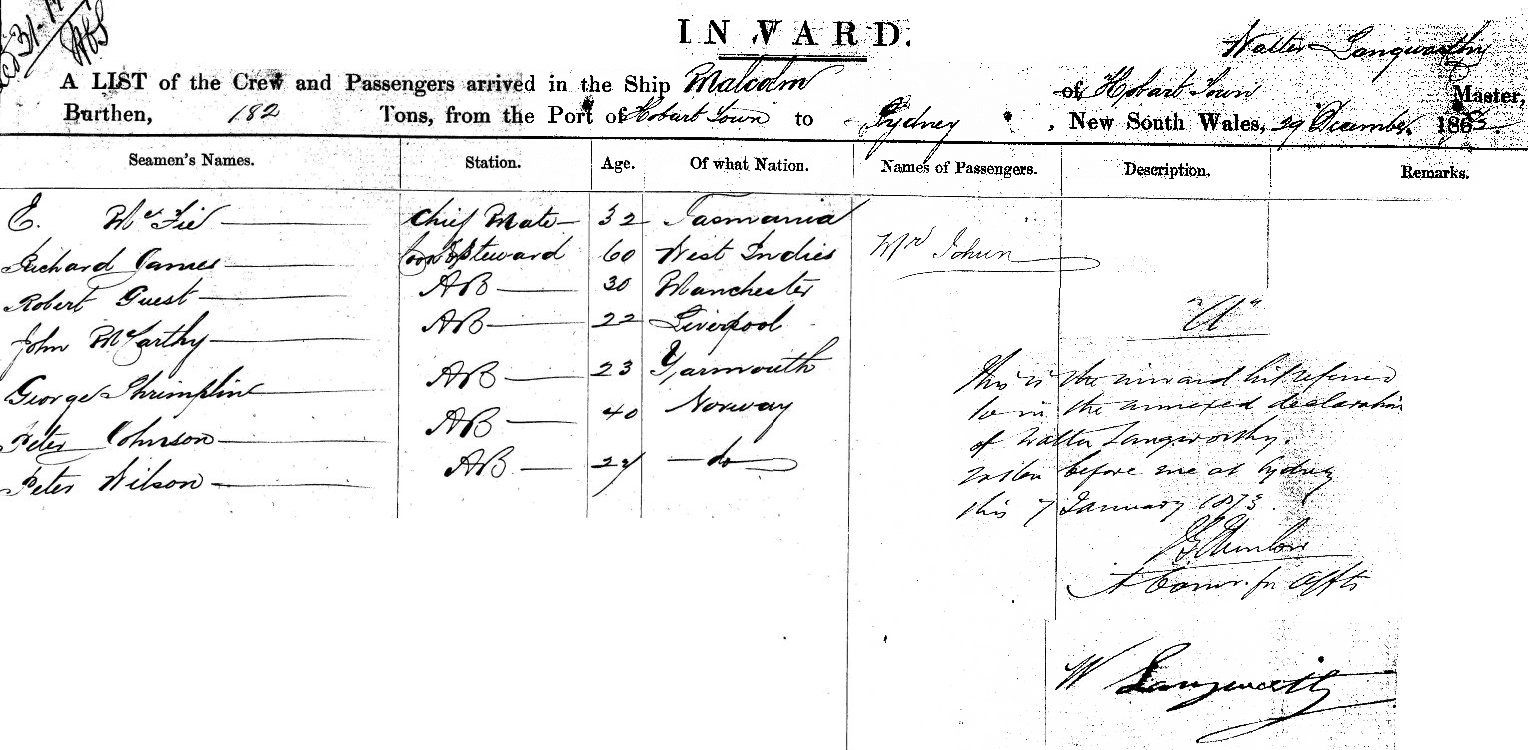 INWARD.
Walter Langworthy
A LIST of the Crew and Passengers arrived in the Ship Malcolm of Hobart Town Master,
Burthen, 182 Tons, from the Port of Hobart Town to Sydney, New South Wales, 29 December 186
Seamen's Names. Station. Age. Of what Nation. Names of Passengers. Description. Remarks.
E. McFie Chief Mate 32 Tasmania
Richard James Cook & Steward 60 West Indies Mr
Robert Guest AB 30 Manchester
John McCarthy AB 22 Liverpool
George Shrimplin AB 23 Yarmouth
Peter Johnson AB 40 Norway
Peter Wilson AB do
"A"
This is the inward list referred
to in the annexed declaration
of Walter Langworthy.
taken before me at Sydney
this 7 January 1873
A Comr. for Affts
W Langworthy